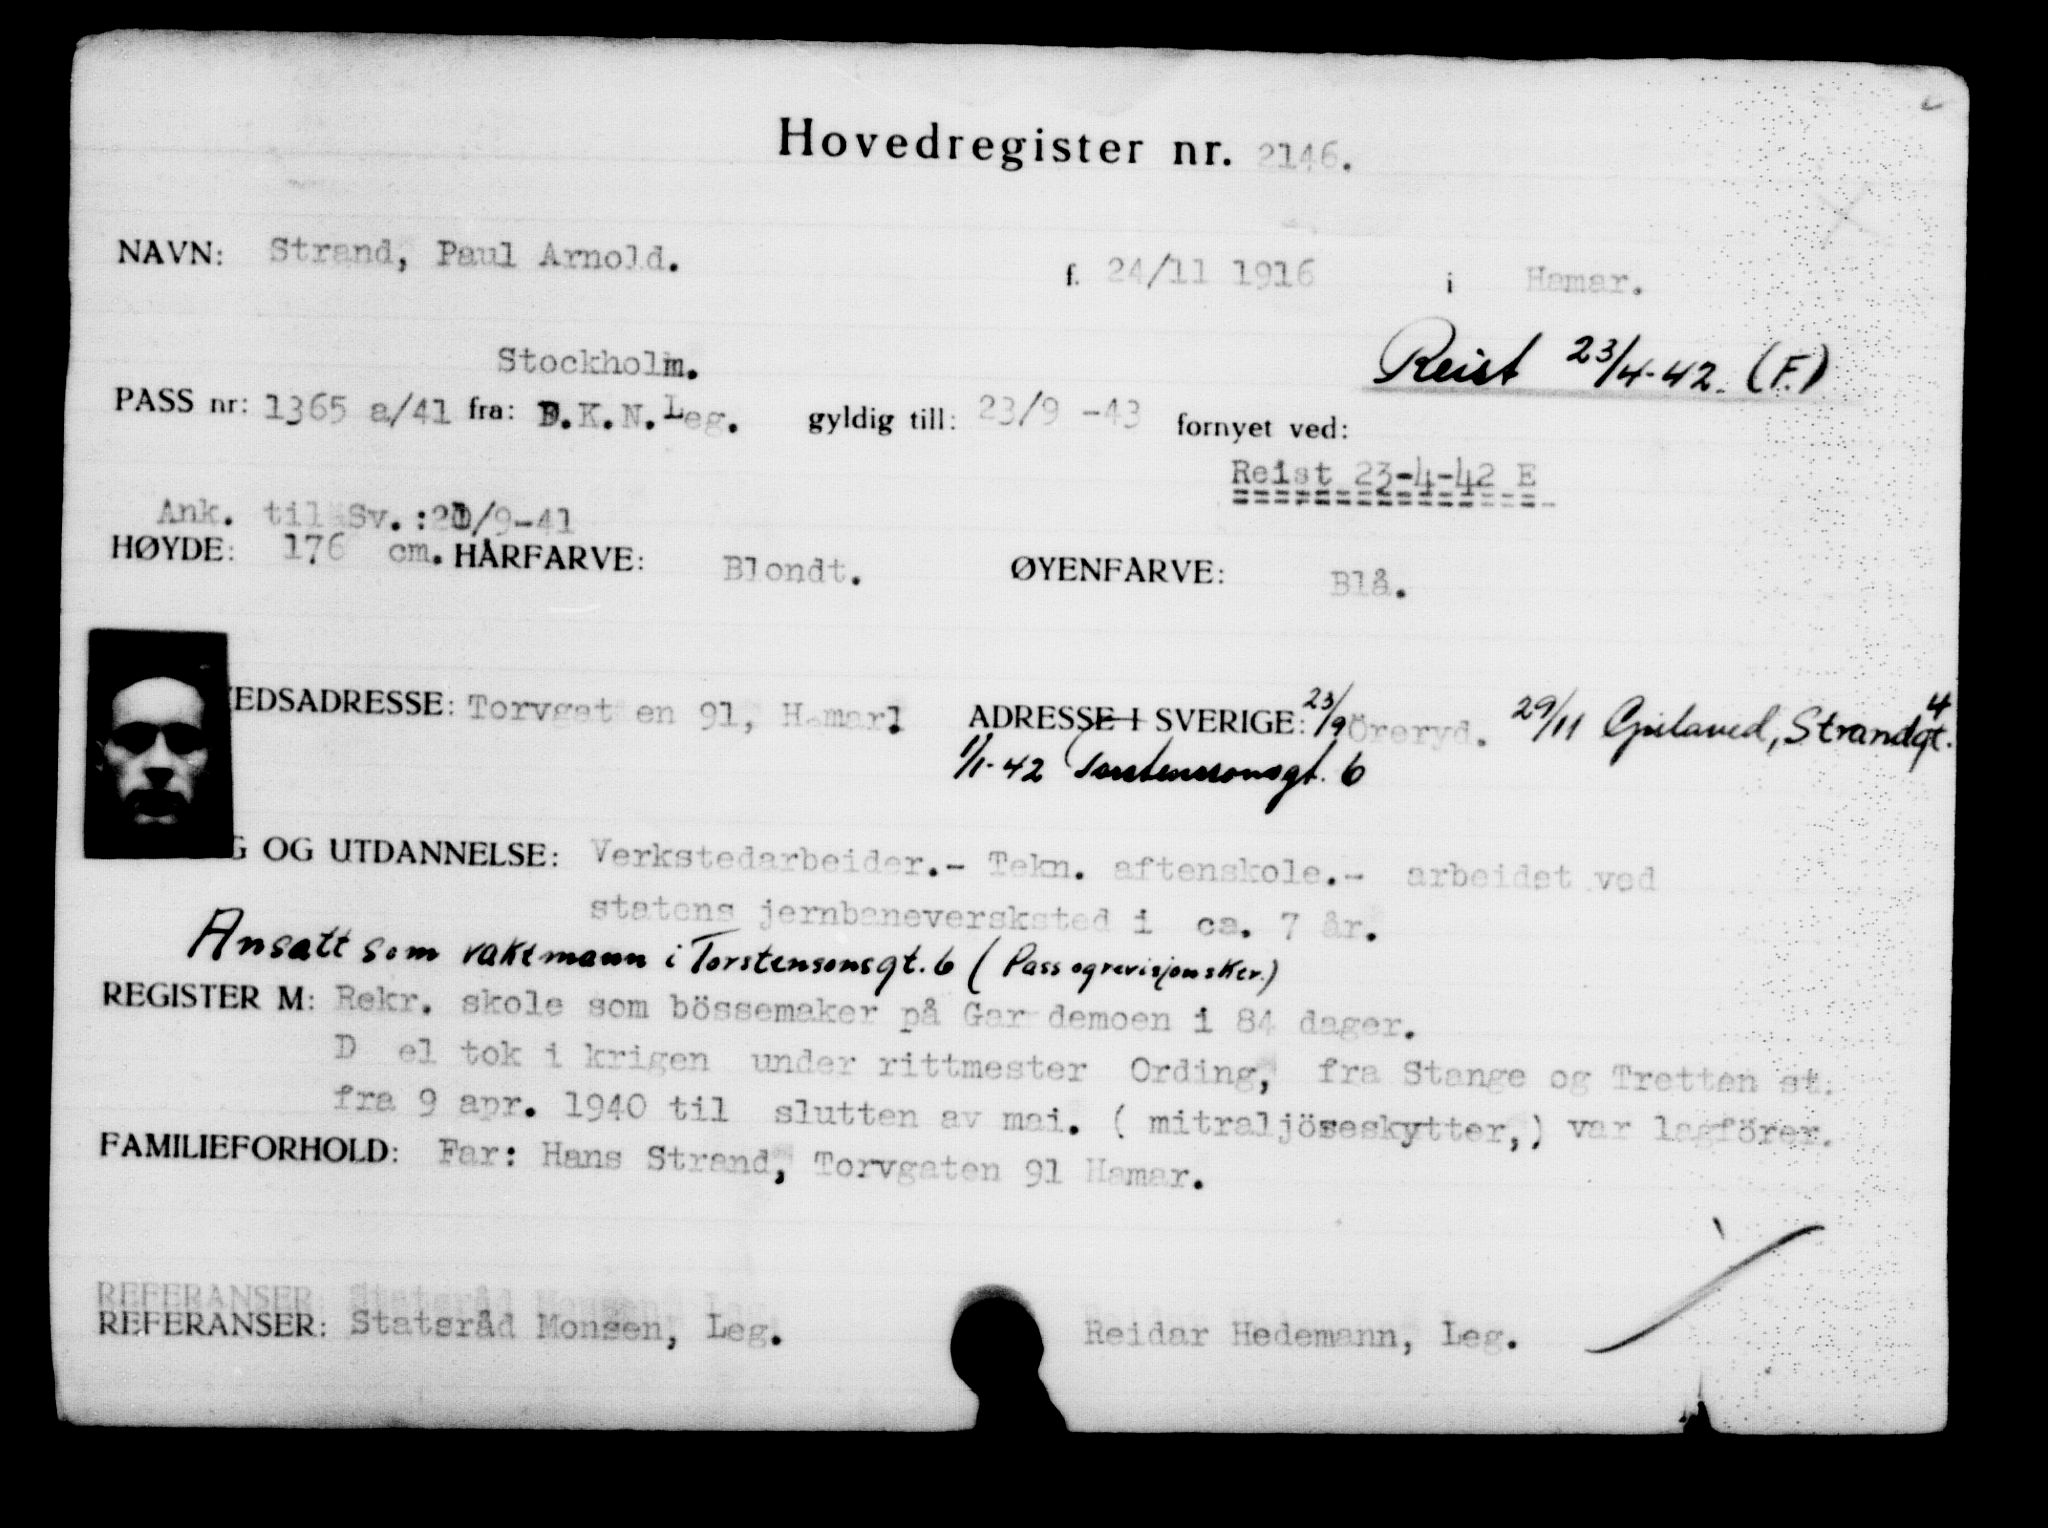 Hovedregister nr. 2146.
NAVN: Strand, Paul Arnold. f. 24/11 1916 i Hamar.
Reist 23/4-42. (F.)
Stockholm.
PASS nr: 1365 a/41 fra: D.K.N.Leg. gyldig till: 23/9 -43 fornyet ved:
Reist 23-4-42 E
Ank. til Sv.:20/9-41
HØYDE: 176 cm. HÅRFARVE: Blondt. ØYENFARVE: Blå.
EDSADRESSE: Torvgat en 91, Hamar. ADRESSE I SVERIGE: 23/9 Öreryd. 29/11 Gislaved, Strandgt. 4
1/1-42 Torstenssonsgt. 6
G OG UTDANNELSE: Verkstedarbeider.- Tekn. aftenskole.- arbeidet ved
statens jernbaneversksted i ca. 7 år.
Ansatt som vaktmann i Torstensonsgt. 6 (Pass og revisjonsktr.)
REGISTER M: Rekr. skole som bössemaker på Gar demoen i 84 dager.
D el tok i krigen under rittmester Ording, fra Stange og Tretten st.
fra 9 apr. 1940 til slutten av mai. ( mitraljöseskytter,) var lagförer.
FAMILIEFORHOLD: Far: Hans Strand, Torvgaten 91 Hamar.
REFERANSER: Statsråd Monsen, Leg.
REFERANSER: Statsråd Monsen, Leg. Reidar Hedemann, Leg.